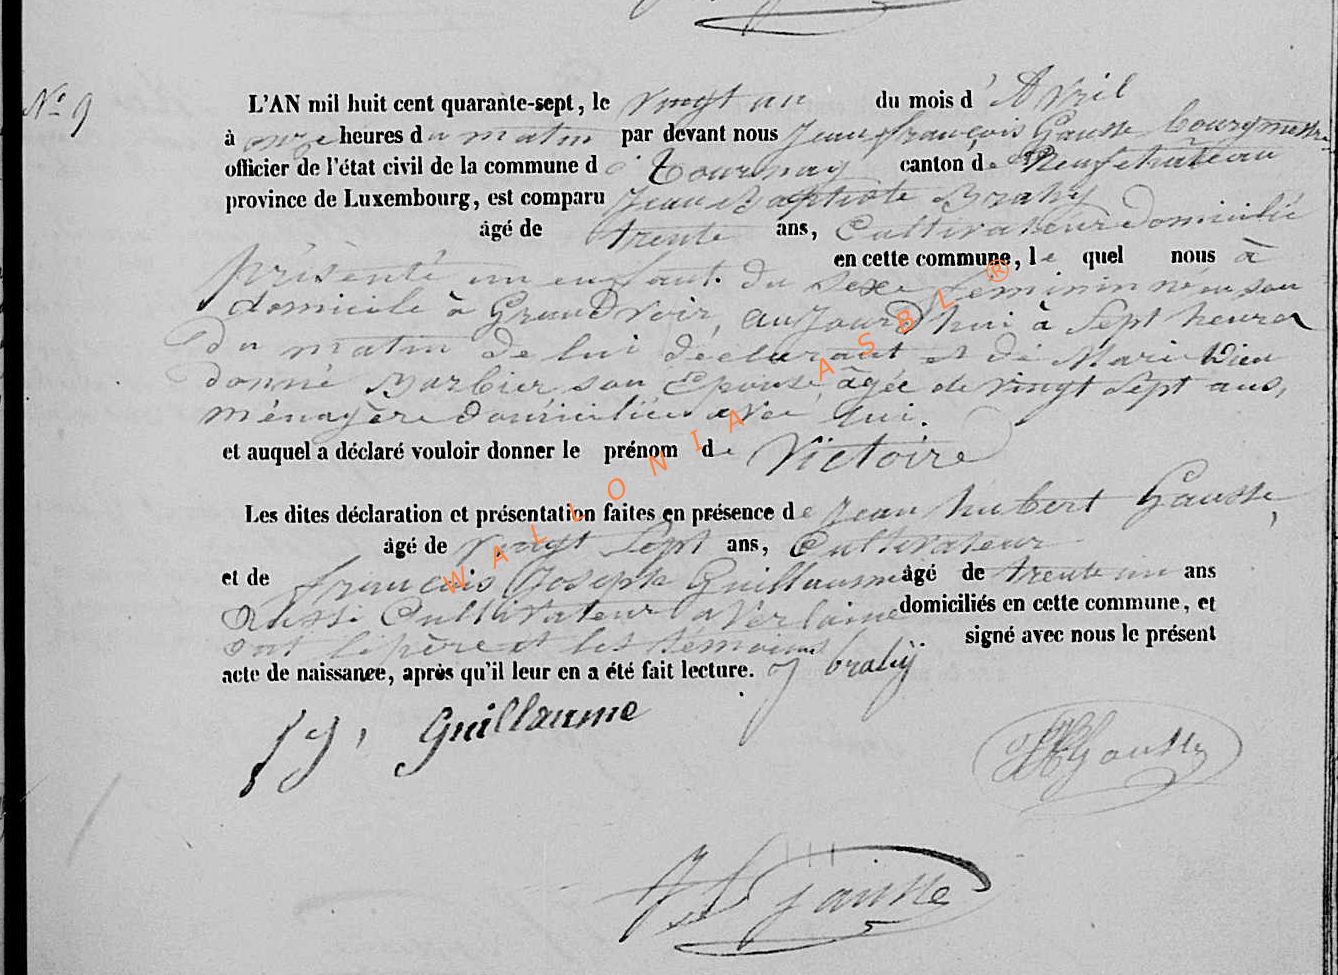 N° 9
L'AN mil huit cent quarante-sept, le vingt un du mois d' Avril
à onze heures du matin par devant nous Jean françois Gausse bourgmestre
officier de l'état civil de la commune de Tournay canton de Neufchâteau
province de Luxembourg, est comparu Jean Baptiste Brahy
âgé de trente ans, Cultivateur domicilié
en cette commune, le quel nous à
présenté un enfant du sexe feminin né en son
domicile à GrandVoir, aujourd'hui à Sept heures
du matin de lui déclarant et de Marie Dieu
donné Barbier son Epouse, âgée de vingt Sept ans,
ménagère domiciliée avec lui.
et auquel a déclaré vouloir donner le prénom de Victoire
Les dites déclaration et présentation faites en présence de Jean hubert Gausse,
âgé de vingt Sept ans, Cultivateur
et de françois Joseph Guillaume âgé de trente un ans
Aussi Cultivateur a Verlaine domiciliés en cette commune, et
ont le père et les témoins signé avec nous le présent
acte de naissance, après qu'il leur en a été fait lecture. J brahÿ
fj, Guillaume
JH Gausse
JF Gausse
WALLONIA ASBL ®